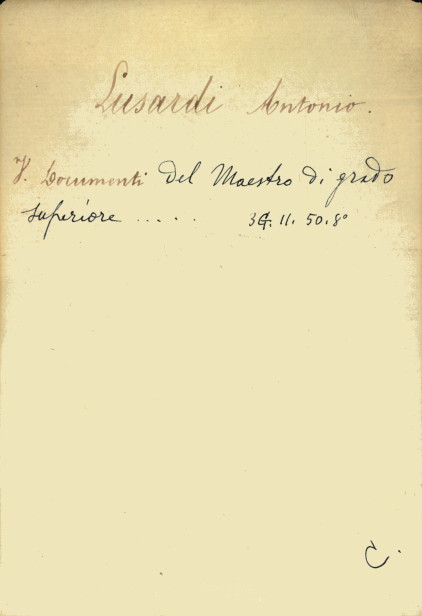 Lusardi Antonio.
V. Documenti del Maestro di grado
superiore ..... 3G. II. 50.8°
C.